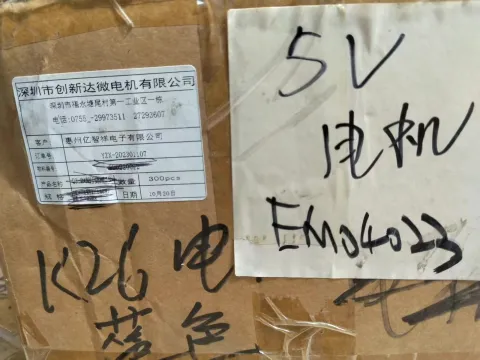 深圳市创新达微电机有限公司
深圳市福永塘尾村第一工业区一栋
电话:0755-29973511 27293607
客户 惠州亿智祥电子有限公司
订单号
产品名称 数量 300pcs
规格 日期 10月20日
5V
电机
EM04023
K26 电
蓝色